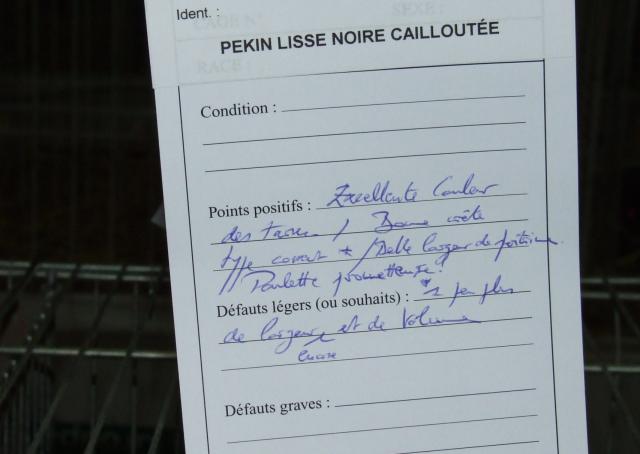 Ident. :
CAGE N° SEXE :
PEKIN LISSE NOIRE CAILLOUTÉE
RACE :
Condition :
Points positifs : Excellente Couleur
des tarses / Bonne crête
type correct * / Belle largeur de poitrine.
/ Poulette prometteuse !
Défauts légers (ou souhaits) : * 1 peu plus
de largeur et de Volume
encore
Défauts graves :